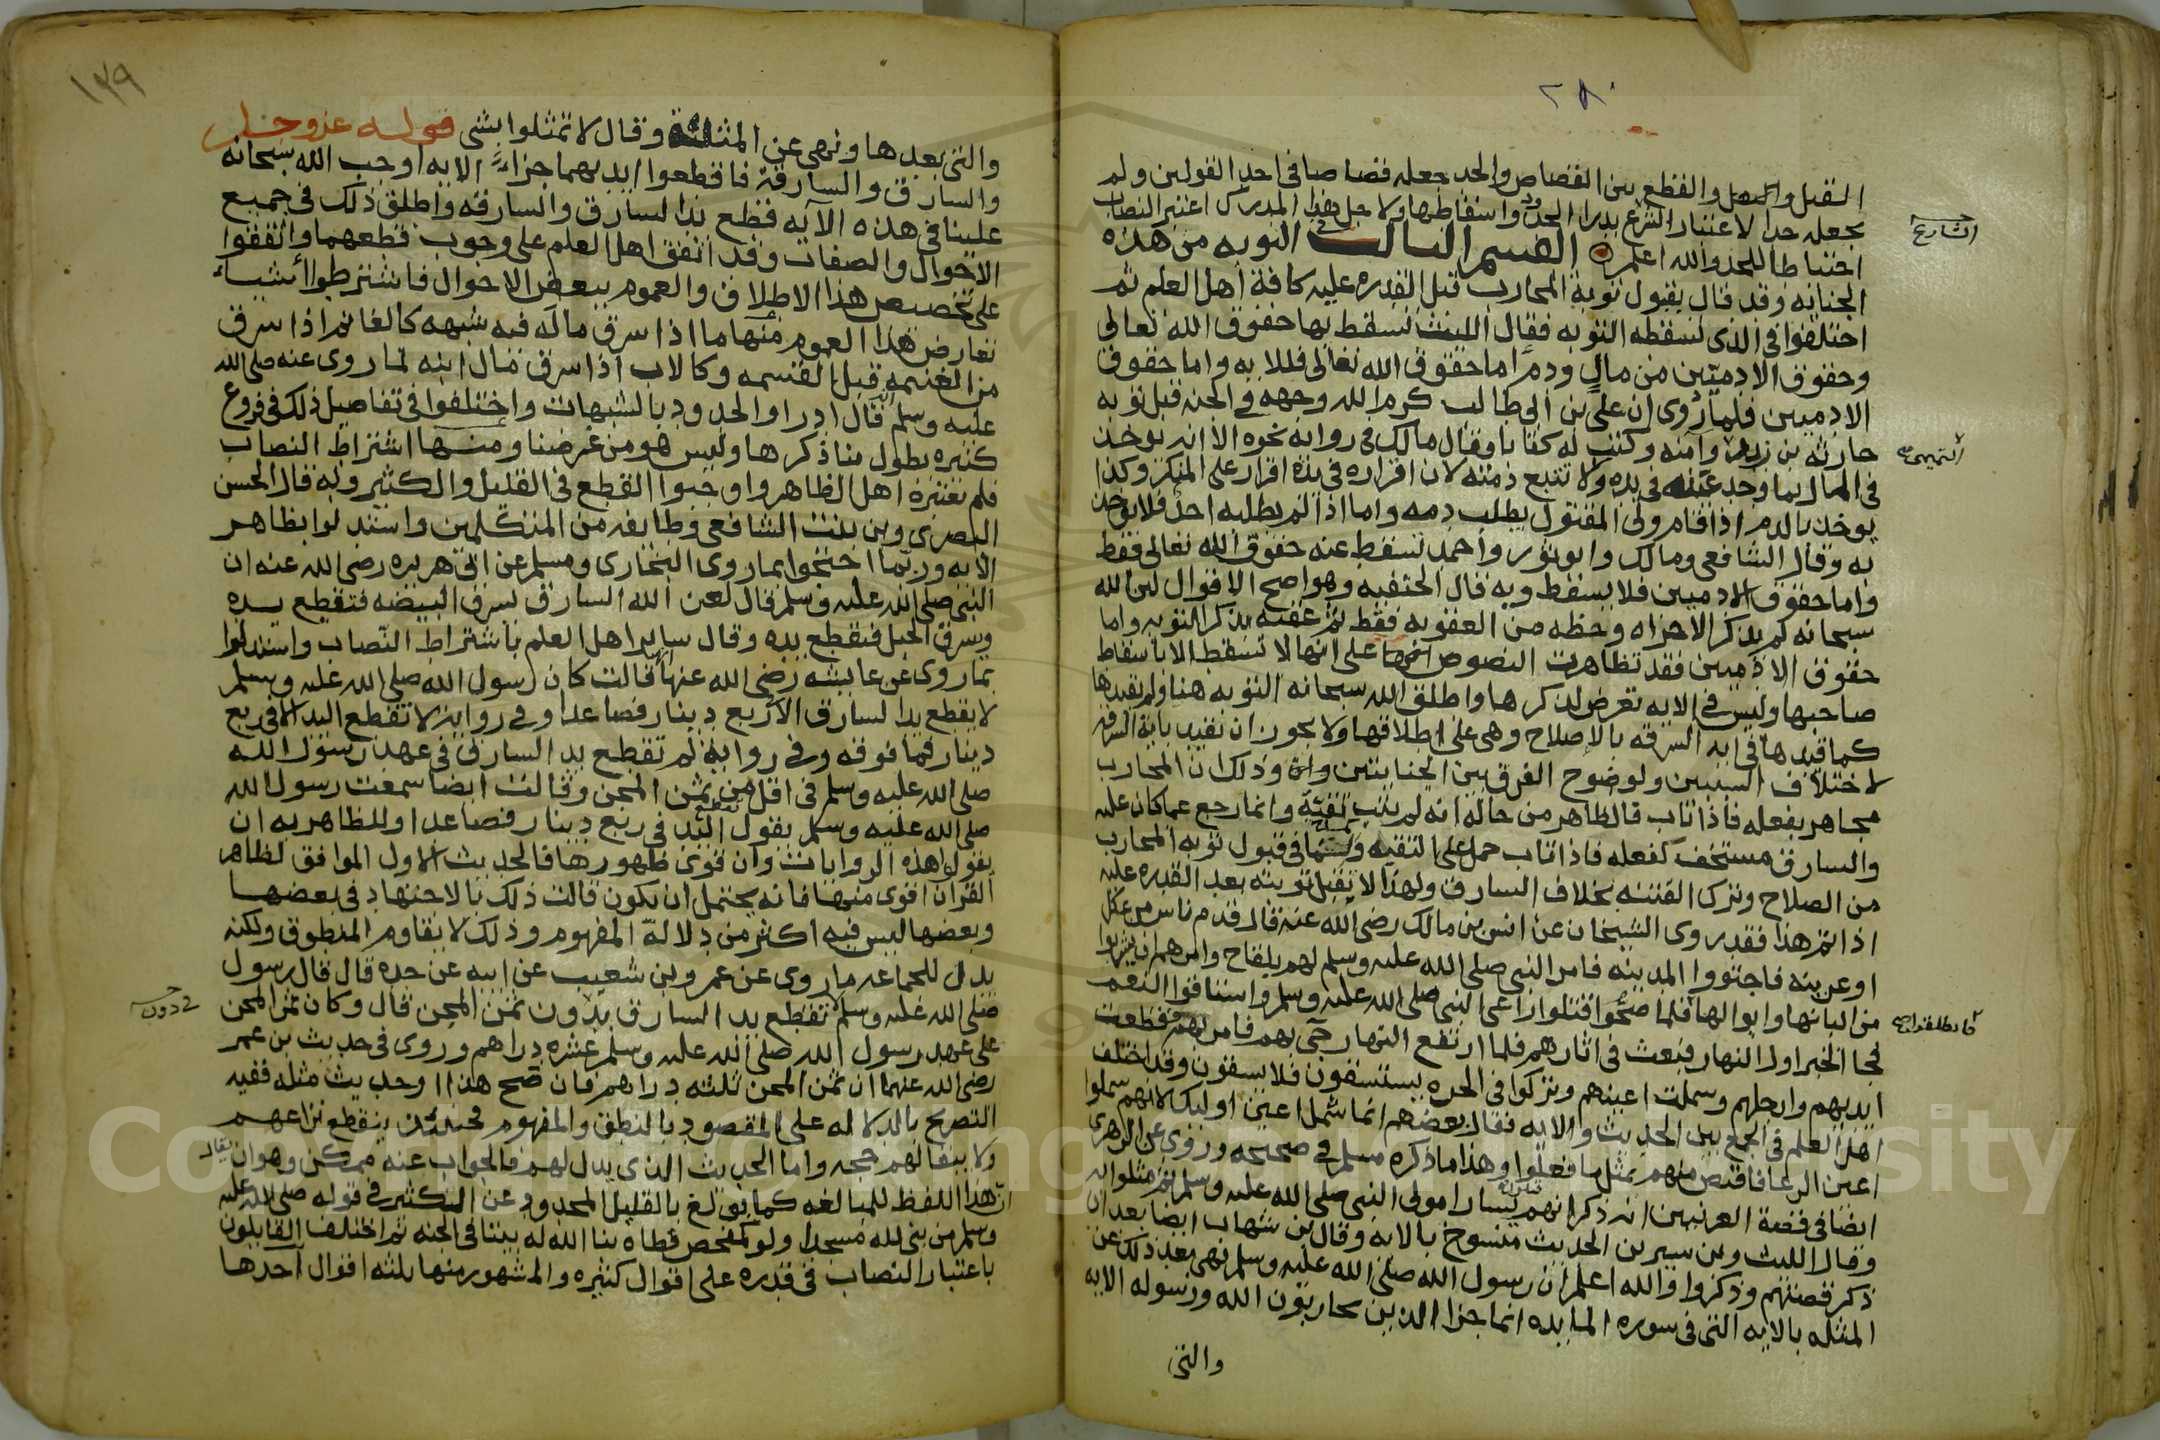 ٢٨٠
القتل والصلب والقطع بين القصاص والحد جعله قصاصا في احد القولين ولم
يجعله حدا لاعتبار الشرع بدرا الحدود واسقاطها ولاجل هذا المدرك اعتبر النصاب
الشارع
احتياطا للحد والله اعلم القسم الثالث في التوبه من هذه
الجنايه وقد قال بقبول توبة المحارب قبل القدره عليه كافة اهل العلم ثم
اختلفوا في الذي تسقطه التوبه فقال الليث تسقط بها حقوق الله تعالى
وحقوق الادميين من مال ودم اما حقوق الله تعالى فللايه واما حقوق
الادميين فلما روى ان علي بن ابي طالب كرم الله وجهه في الجنه قبل توبه
حارثه بن زيد وامنه وكتب له كتابا وقال مالك في روايه نحوه الا انه يوخذ
التميمي
في المال بما وجد عنده في يده ولا تتبع ذمته لان اقراره في يده اقرار على المنكر وكذا
يوخذ بالدم اذا قام ولي المقتول يطلب دمه واما اذا لم يطلبه احد فلا يوخذ
به وقال الشافعي ومالك وابو ثور واحمد تسقط عنه حقوق الله تعالى فقط
واما حقوق الادميين فلا يسقط وبه قال الحنفيه وهو اصح الاقوال لان الله
سبحانه لم يذكر الاجزاه وحظه من العقوبه فقط ثم عقبه بذكر التوبه واما
حقوق الادميين فقد تظاهرت النصوص على انها لا تسقط الا باسقاط
صاحبها وليس في الايه تعرض لذكرها واطلق الله سبحانه التوبه هنا ولم يقيدها
كما قيدها في ايه السرقه بالاصلاح وهي على اطلاقها ولا يجوز ان تقيد باية السرقه
لاختلاف السببين ولوضوح الفرق بين الجنايتين وذلك ان المحارب
مجاهر بفعله فاذا تاب فالظاهر من حاله انه لم يتب تقية وانما رجع عما كان عليه
والسارق مستخف بفعله فاذا تاب حمل على التقيه في قبول توبه المحارب
من الصلاح وترك الفتنه بخلاف السارق ولهذا لا يقبل توبته بعد القدره عليه
اذا تقرر هذا فقد روى الشيخان عن انس بن مالك رضي الله عنه قال قدم ناس من عكل
او عرينه فاجتووا المدينه فامر النبي صلى الله عليه وسلم لهم بلقاح وامرهم ان يشربوا
من البانها وابوالها فلما صحوا قتلوا راعي النبي صلى الله عليه وسلم واستاقوا النعم
فانطلقوا
فجا الخبر اول النهار فبعث في اثارهم فلما ارتفع النهار جي بهم فامر بهم فقطعت
ايديهم وارجلهم وسملت اعينهم وتركوا في الحره يستسقون فلا يسقون وقد اختلف
اهل العلم في الجمع بين الحديث والايه فقال بعضهم انما سمل اعين اوليك لانهم سملوا
اعين الرعا فاقتص منهم بمثل ما فعلوا وهذا ما ذكره مسلم في صحيحه وروى عن الزهري
ايضا في قصة العرنيين انه ذكر انهم قتلوا يسارا مولى النبي صلى الله عليه وسلم ثم مثلوا به
وقال الليث وبن سيرين الحديث منسوخ بالايه وقال بن شهاب ايضا بعد ان
ذكر قصتهم وذكروا والله اعلم ان رسول الله صلى الله عليه وسلم نهى بعد ذلك عن
المثله بالايه التي في سوره المايده انما جزا الذين يحاربون الله ورسوله الايه
والتي
١٣٩
والتي بعدها ونهى عن المثلة وقال لا تمثلوا بشي قوله عز وجل
والسارق والسارقة فاقطعوا ايديهما جزاء الايه اوجب الله سبحانه
علينا في هذه الآيه قطع يد السارق والسارقه واطلق ذلك في جميع
الاحوال والصفات وقد اتفق اهل العلم على وجوب قطعهما واتفقوا
على تخصيص هذا الاطلاق والعموم ببعض الاحوال فاشترطوا أشياء
تعارض هذا العموم منها ما اذا سرق ماله فيه شبهه كالغانم اذا سرق
من الغنيمه قبل القسمه وكالاب اذا سرق مال ابنه لما روى عنه صلى الله
عليه وسلم انه قال ادراوا الحدود بالشبهات واختلفوا في تفاصيل ذلك في فروع
كثيره يطول بنا ذكرها وليس هو من غرضنا ومنها اشتراط النصاب
فلم يعتبره اهل الظاهر واوجبوا القطع في القليل والكثير وبه قال الحسن
البصري وبن بنت الشافعي وطايفه من المتكلمين واستدلوا بظاهر
الايه وربما احتجوا بما روى البخاري ومسلم عن ابي هريره رضي الله عنه ان
النبي صلى الله عليه وسلم قال لعن الله السارق يسرق البيضه فتقطع يده
ويسرق الحبل فتقطع يده وقال ساير اهل العلم باشتراط النصاب واستدلوا
بما روى عن عايشه رضي الله عنها قالت كان رسول الله صلى الله عليه وسلم
لا يقطع يد السارق الا في ربع دينار فصاعدا وفي رواية لا تقطع اليد الا في ربع
دينار فما فوقه وفي رواية لم تقطع يد السارق في عهد رسول الله
صلى الله عليه وسلم في اقل من ثمن المجن وقالت ايضا سمعت رسول الله
صلى الله عليه وسلم يقول تقطع اليد في ربع دينار فصاعدا وللظاهريه ان
يقولوا هذه الروايات وان قوى ظهورها فالحديث الاول الموافق لظاهر
القران اقوى منها فانه يحتمل ان يكون قالت ذلك بالاجتهاد في بعضها
وبعضها ليس فيه اكثر من دلالة المفهوم وذلك لا يقاوم المنطوق ولكنه
يدل للجماعه ما روى عن عمرو بن شعيب عن ابيه عن جده قال قال رسول
صلى الله عليه وسلم لا تقطع يد السارق بدون ثمن المجن قال وكان ثمن المجن
في دون
على عهد رسول الله صلى الله عليه وسلم عشره دراهم وروى في حديث بن عمر
رضي الله عنهما ان ثمن المجن ثلثه دراهم فان صح هذا او حديث مثله ففيه
التصريح بالدلاله على المقصود بالنطق والمفهوم فحينئذ ينقطع نزاعهم
ولا يبقا لهم حجه واما الحديث الذي يدل لهم فالجواب عنه ممكن وهو ان يقال
ان هذا اللفظ للمبالغه كما بولغ بالقليل المحدود عن التكثير في قوله صلى الله عليه
وسلم من بنى لله مسجدا ولو كمفحص قطاه بنا الله له بيتا في الجنه ثم اختلف القايلون
باعتبار النصاب في قدره على اقوال كثيره والمشهور منها ثلثه اقوال احدها